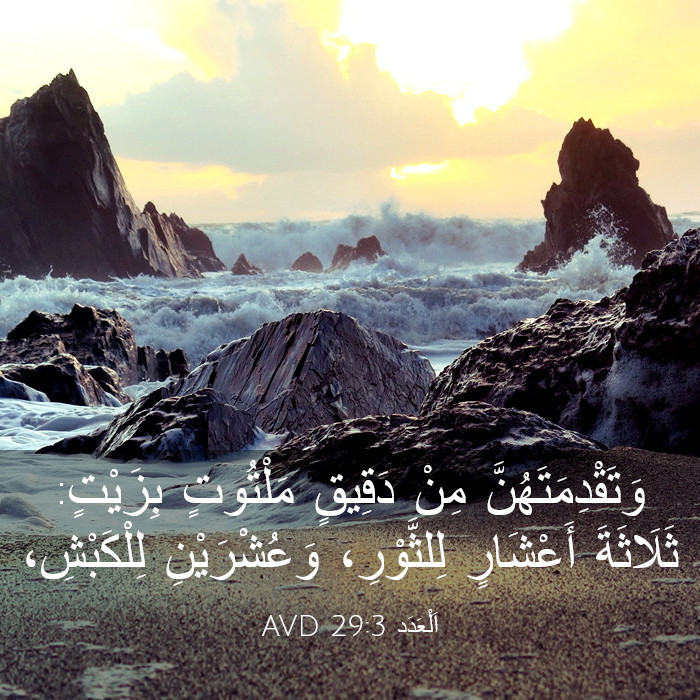 وَتَقْدِمَتَهُنَّ مِنْ دَقِيقٍ مَلْتُوتٍ بِزَيْتٍ:
ثَلَاثَةَ أَعْشَارٍ لِلثَّوْرِ، وَعُشْرَيْنِ لِلْكَبْشِ،
اَلْعَدَد 29:3 AVD